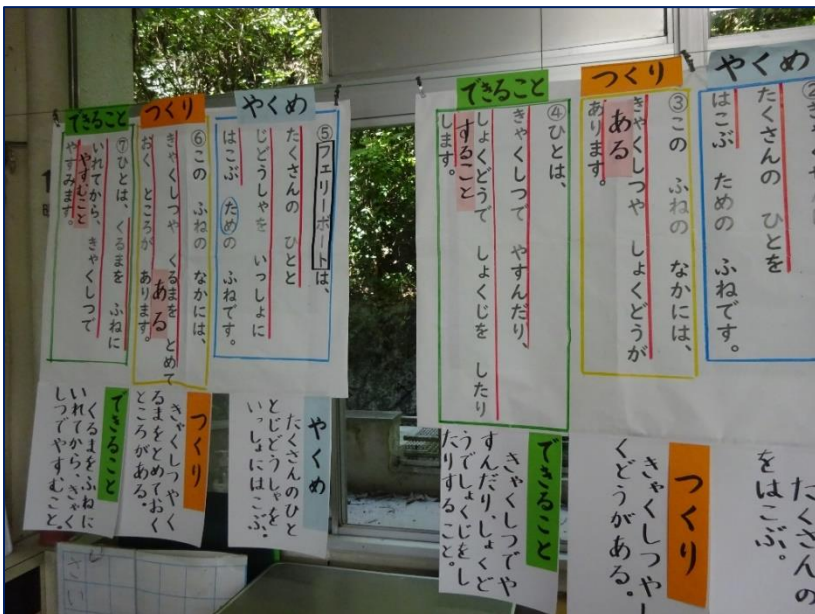 やくめ
たくさんの ひとを
はこぶ ための ふねです。
つくり
③この ふねの なかには、
きゃくしつや しょくどうが
あります。
ある
できること
④ひとは、
きゃくしつで やすんだり、
しょくどうで しょくじを したり
します。
すること
やくめ
⑤フェリーボートは、
たくさんの ひとと
じどうしゃを いっしょに
はこぶ ための ふねです。
つくり
⑥この ふねの なかには、
きゃくしつや くるまを とめて
おく ところが あります。
ある
できること
⑦ひとは、くるまを ふねに
いれてから、きゃくしつで
やすみます。
やすむこと
たくさんの
をはこぶ。
つくり
きゃくしつやし
くどうがある。
できること
きゃくしつでや
すんだり、しょくど
うでしょくじをし
たりすること。
やくめ
たくさんのひと
とじどうしゃを
いっしょにはこぶ。
つくり
きゃくしつやく
るまをとめておく
ところがある。
できること
くるまをふねに
いれてから、きゃく
しつでやすむこと。